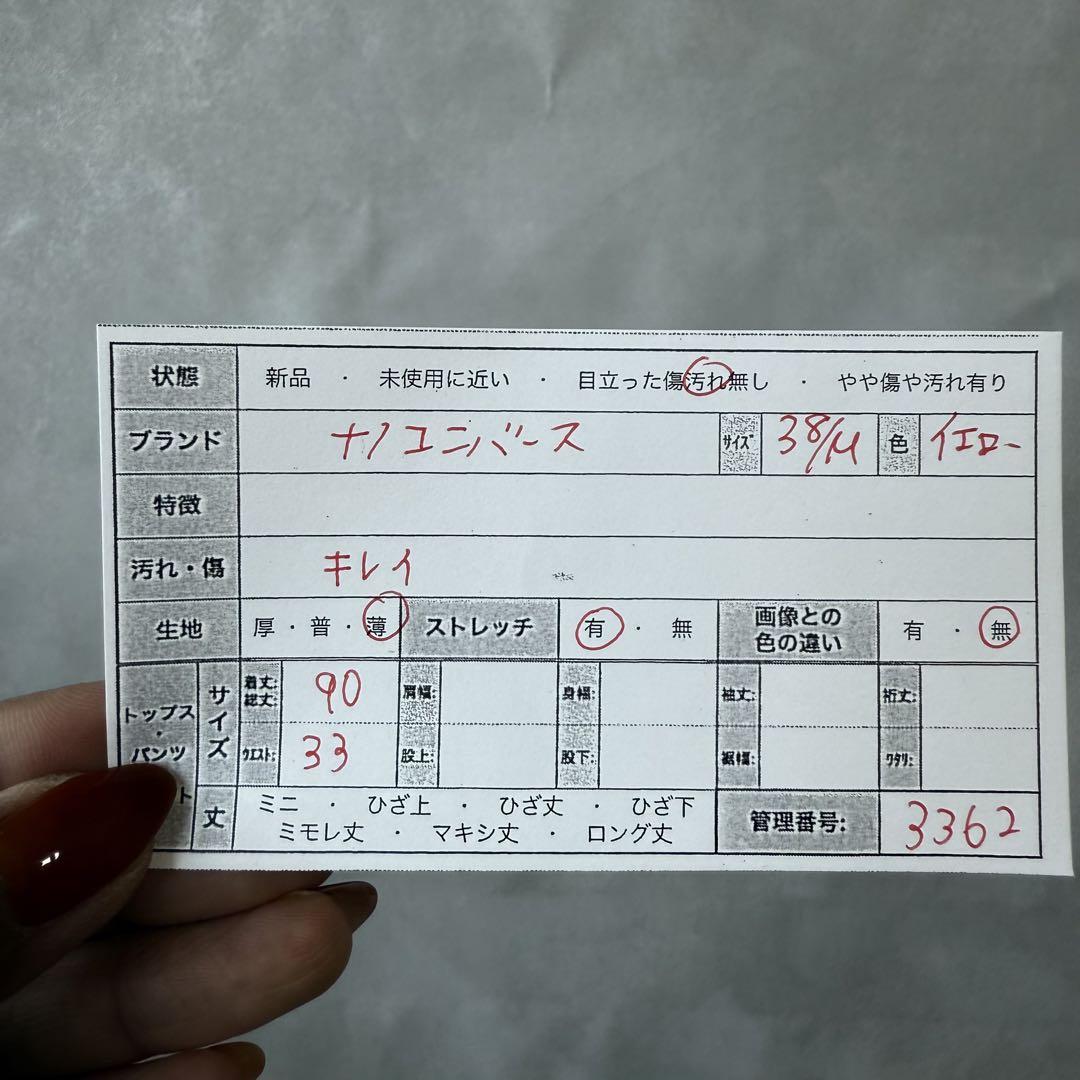 状態 新品 ・ 未使用に近い ・ 目立った傷汚れ無し ・ やや傷や汚れ有り
ブランド ナノユニバース サイズ 38/M 色 イエロー
特徴
汚れ・傷 キレイ
生地 厚・普・薄 ストレッチ 有 ・ 無 画像との色の違い 有 ・ 無
トップス・パンツ サイズ 着丈:総丈: 90 肩幅: 身幅: 袖丈: 裄丈:
ウエスト: 33 股上: 股下: 裾幅: ワタリ:
丈 ミニ ・ ひざ上 ・ ひざ丈 ・ ひざ下
ミモレ丈 ・ マキシ丈 ・ ロング丈 管理番号: 3362